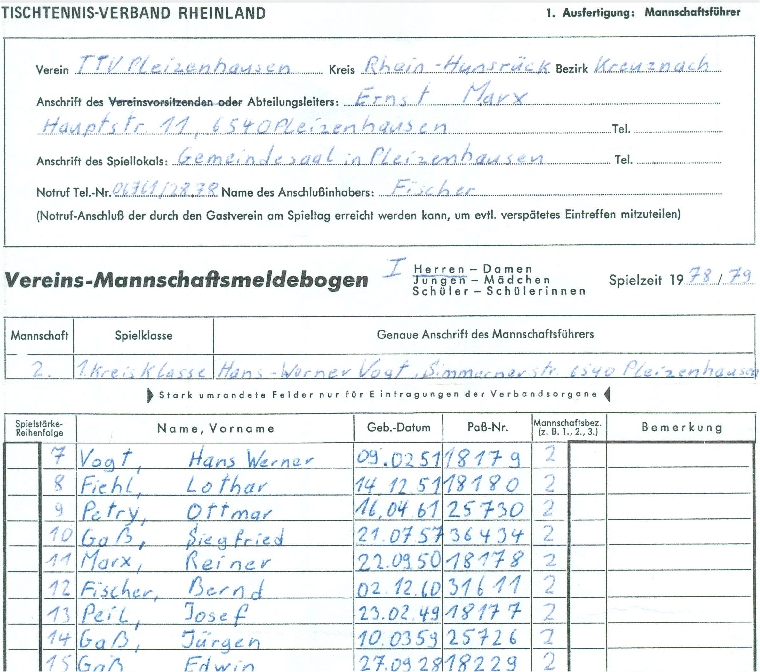 TISCHTENNIS-VERBAND RHEINLAND 1. Ausfertigung: Mannschaftsführer
Verein TTV Pleizenhausen Kreis Rhein-Hunsrück Bezirk Kreuznach
Anschrift des Vereinsvorsitzenden oder Abteilungsleiters: Ernst Marx
Hauptstr 11, 6540 Pleizenhausen Tel.
Anschrift des Spiellokals: Gemeindesaal in Pleizenhausen Tel.
Notruf Tel.-Nr. 06761/2878 Name des Anschlußinhabers: Fischer
(Notruf-Anschluß der durch den Gastverein am Spieltag erreicht werden kann, um evtl. verspätetes Eintreffen mitzuteilen)
Vereins-Mannschaftsmeldebogen I Herren – Damen
Jungen – Mädchen
Schüler – Schülerinnen
Spielzeit 1978/79
Mannschaft Spielklasse Genaue Anschrift des Mannschaftsführers
2. 1. Kreisklasse Hans-Werner Vogt, Simmernerstr. 6540 Pleizenhausen
Stark umrandete Felder nur für Eintragungen der Verbandsorgane
Spielstärke-Reihenfolge Name, Vorname Geb.-Datum Paß-Nr. Mannschaftsbez. (z. B. 1., 2., 3.) Bemerkung
7 Vogt, Hans Werner 09.0251 18179 2
8 Fiehl, Lothar 14.12.51 18180 2
9 Petry, Ottmar 16.04.61 25730 2
10 Gaß, Siegfried 21.0757 36434 2
11 Marx, Reiner 22.0950 18178 2
12 Fischer, Bernd 02.12.60 31611 2
13 Peil, Josef 23.02.49 18177 2
14 Gaß, Jürgen 10.0359 25726 2
15 Gaß Edwin 27.0928 18229 2